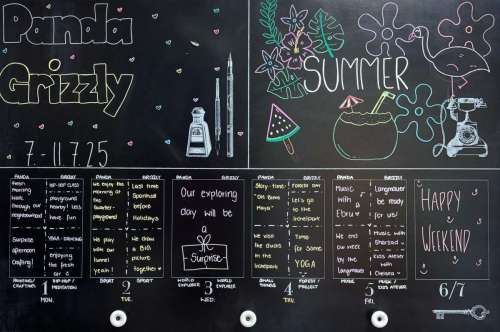 Panda
Grizzly
7.-11.7.25
SUMMER
PANDA GRIZZLY PANDA GRIZZLY PANDA GRIZZLY PANDA GRIZZLY
Fresh
morning
walk
through our
neighbourhood
HIP-HOP CLASS
playground
Honey! Lets
have fun
Surprise
afternoon
Crafting!
YOGA-DANCING
enjoying
the fresh
air
We enjoy the
morning at
the
playground
Last time
Sporthall
before
Holidays
We play
with our
tunnel
Yeah!
We draw
a BIG
picture
together
Our exploring
day will be
a
Surprise
Story-time:
"Oh Bravo
Maya"
FOREST DAY
Let's go
to the
Irchelpark
We visit
the ducks
in the
Irchelpark
Time
for some
YOGA
Music
with
Flavi
Langmauer
be ready
for us!
We end
our week
by the
langmauer
Music with
Sherazad
Kids Atelier
with
Chelsea
HAPPY
WEEKEND
PAINTING/
CRAFTING
1
MON.
HIP-HOP/
MEDITATION
SPORT
2
TUE.
SPORT
WORLD
EXPLORER
3
WED.
WORLD
EXPLORER
SMALL
THINGS
4
THU.
FOREST/
PROJECT
MUSIC
5
FRI.
MUSIC/
KIDS ATELIER
6/7